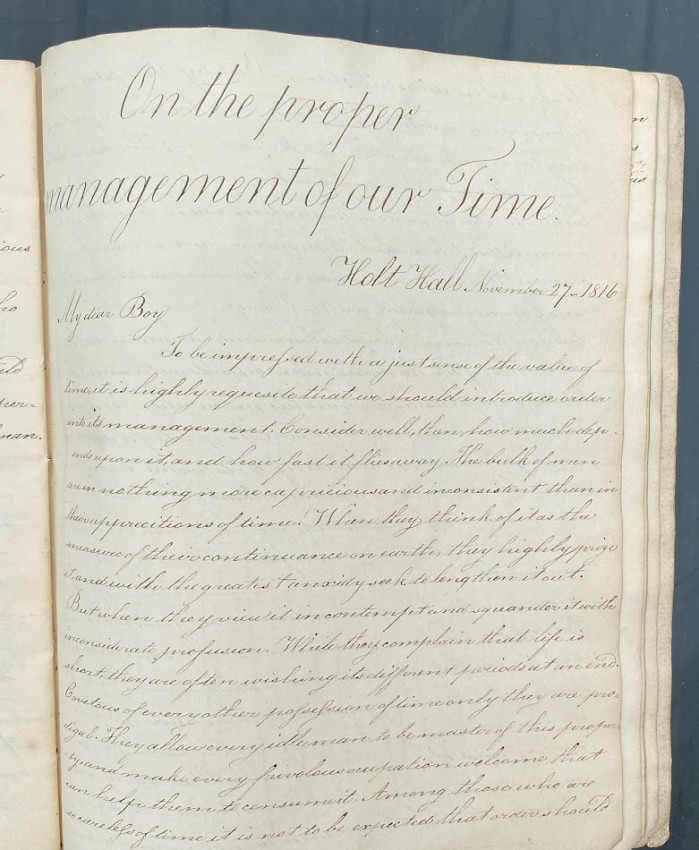 On the proper
management of our Time.
Holt Hall November 27 - 1816
My dear Boy
To be impressed with a just sense of the value of
time, it is highly requisite that we should introduce order
into its management. Consider well, then, how much dep-
ends upon it, and how fast it flies away. The bulk of men
are in nothing more capricious and inconsistent than in
their apprecitions of time. When they think of it as the
measure of their continuance on earth, they highly prize
it, and with the greatest anxiety seek to lengthen it out.
But when they view it in contempt and squander it with
inconsiderate profusion. While they complain that life is
short, they are often wishing its different periods at an end.
Covetous of every other possession of time only they are pro-
digal. They allow every idle man to be master of this proper-
ty, and make every frivolous ocupation welcome that
can help them to consume it. Among those who are
so careless of time it is not to be expected that order should
ious
ho